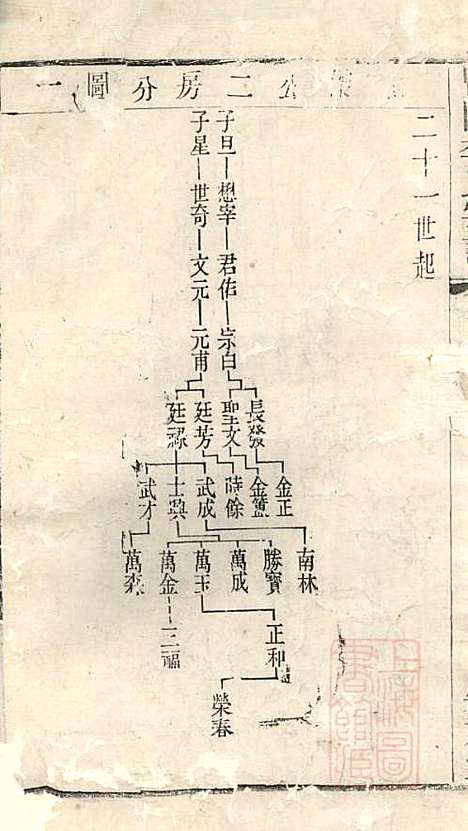 公二房分圖一
二十一世起
子旦 想宰 君佐 宗白
子星 世奇 文元 元甫
長發 聖文 廷芳 廷祿
金正 金簋 時餘 武成 士興 武才
南林 勝寶 萬成 萬玉 萬金 萬森
正和 三福
榮春
上海圖書館藏